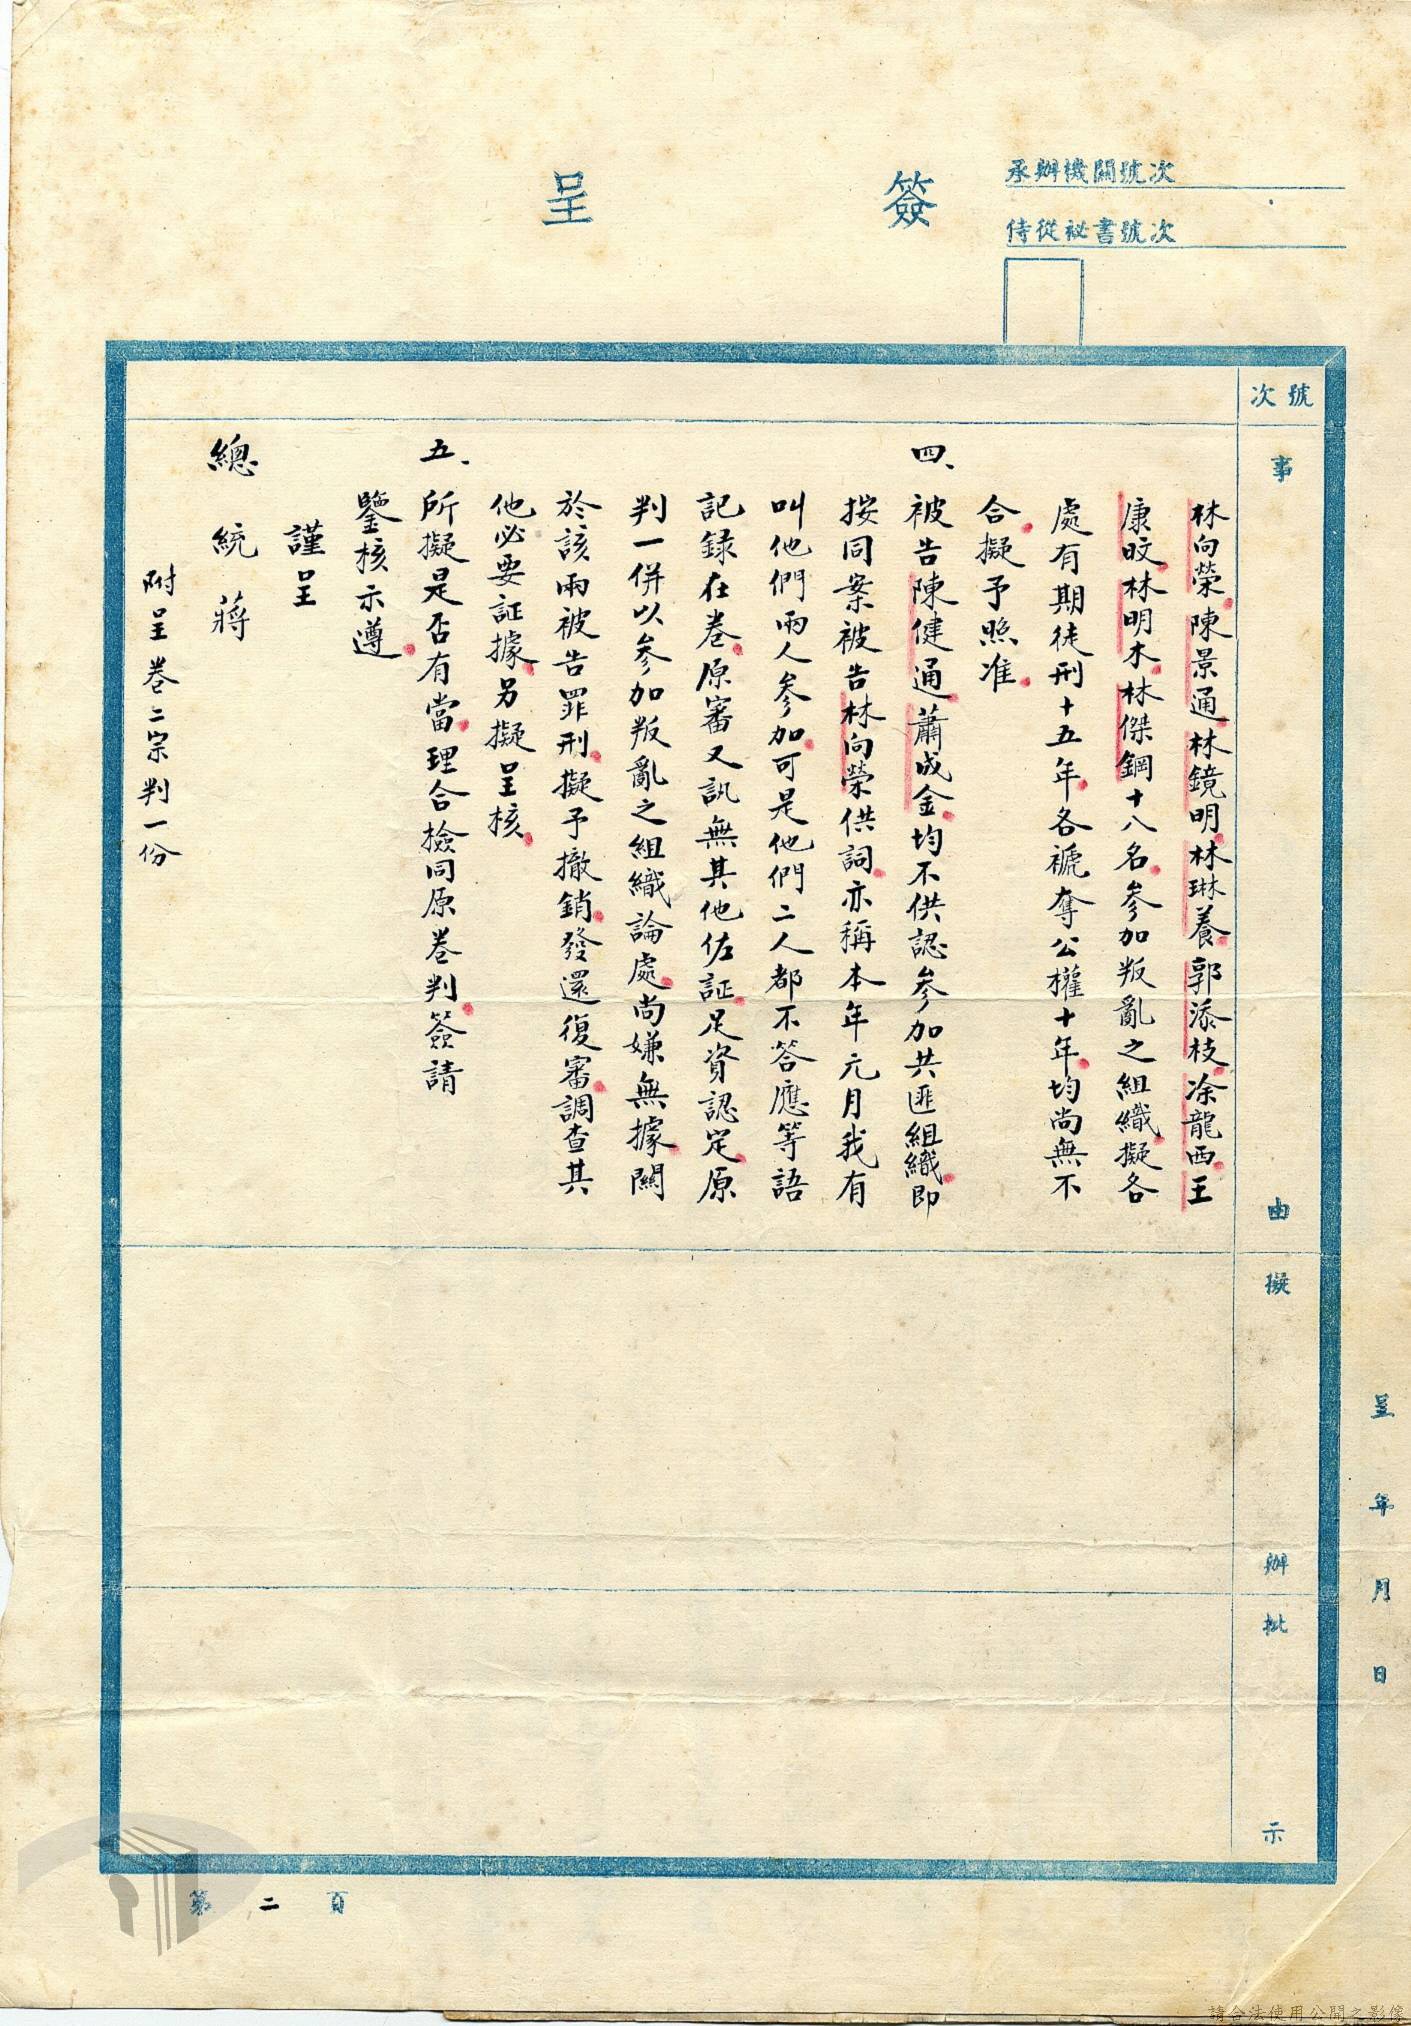 簽呈
承辦機關號次
侍從祕書號次
號次
事由
擬辦
批示
林向榮陳景通林鏡明林琳養郭添枝凃龍西王
康旼林明木林傑鋼十八名參加叛亂之組織擬各
處有期徒刑十五年各褫奪公權十年均尚無不
合擬予照准
四、被告陳健通蕭成金均不供認參加共匪組織即
按同案被告林向榮供詞亦稱本年元月我有
叫他們兩人參加可是他們二人都不答應等語
記錄在卷原審又訊無其他佐証足資認定原
判一併以參加叛亂之組織論處尚嫌無據關
於該兩被告罪刑擬予撤銷發還復審調查其
他必要証據另擬呈核
五、所擬是否有當理合檢同原卷判簽請
鑒核示遵
謹呈
總統蔣
附呈卷二宗判一份
呈年月日
第二頁
請合法使用公開之影像